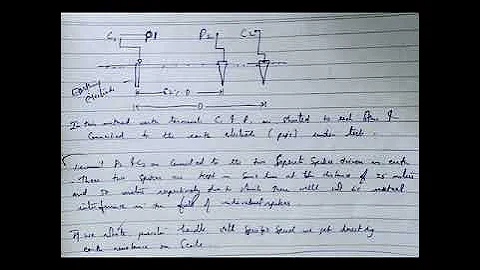 C1 P1 P2 C2
Earthing
electrode
62% D
D
In this method earth terminal C1 & P1 are shorted to each other &
Connected to the earth electrode (pipe) under test.
Terminal P2 & C2 are Connected to the two Separate Spikes driven in earth
These two Spikes are kept in Same line at the distance of 25 meters
and 50 meters respectively due to which there will not be mutual
interference in the field of individual spikes.
If we rotate generator handle with specific Speed we get directly
earth resistance on Scale.